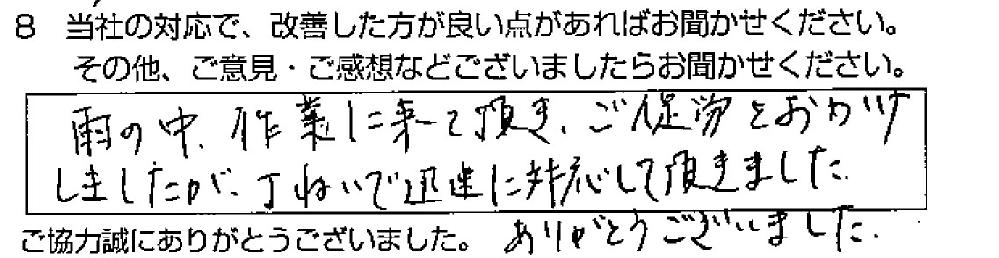 8 当社の対応で、改善した方が良い点があればお聞かせください。
その他、ご意見・ご感想などございましたらお聞かせください。
雨の中、作業に来て頂き、ご足労をおかけ
しましたが、丁ねいで迅速に対応して頂きました
ご協力誠にありがとうございました。 ありがとうございました.